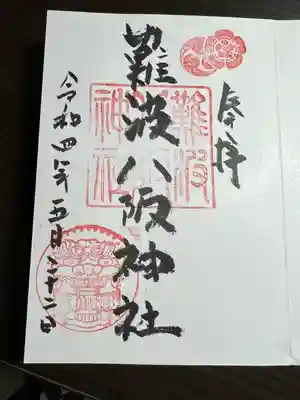 奉拝
難波八阪神社
令和四年五月二十二日
難波
神社